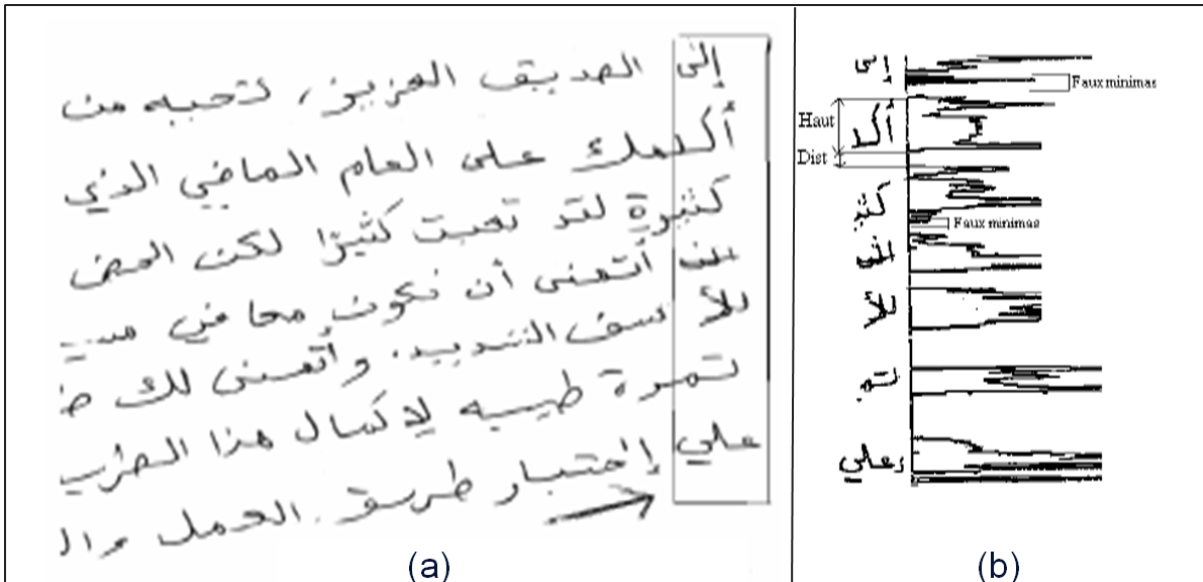 إلى الصديق العزيز، تحيه من
أكلمك على العام الماضي الذي
كثيرة لقد تعبت كثيرًا لكن
أتمنى أن نكون
للأسف الشديد. وأتمنى لك
تمرة طيبه لإكمال هذا
علي إختيار طريق العمل وال
(a)
إلى
Faux minimas
Haut
أكلـ
Dist
كثيـ
Faux minimas
للأ
تمـ
علي
(b)